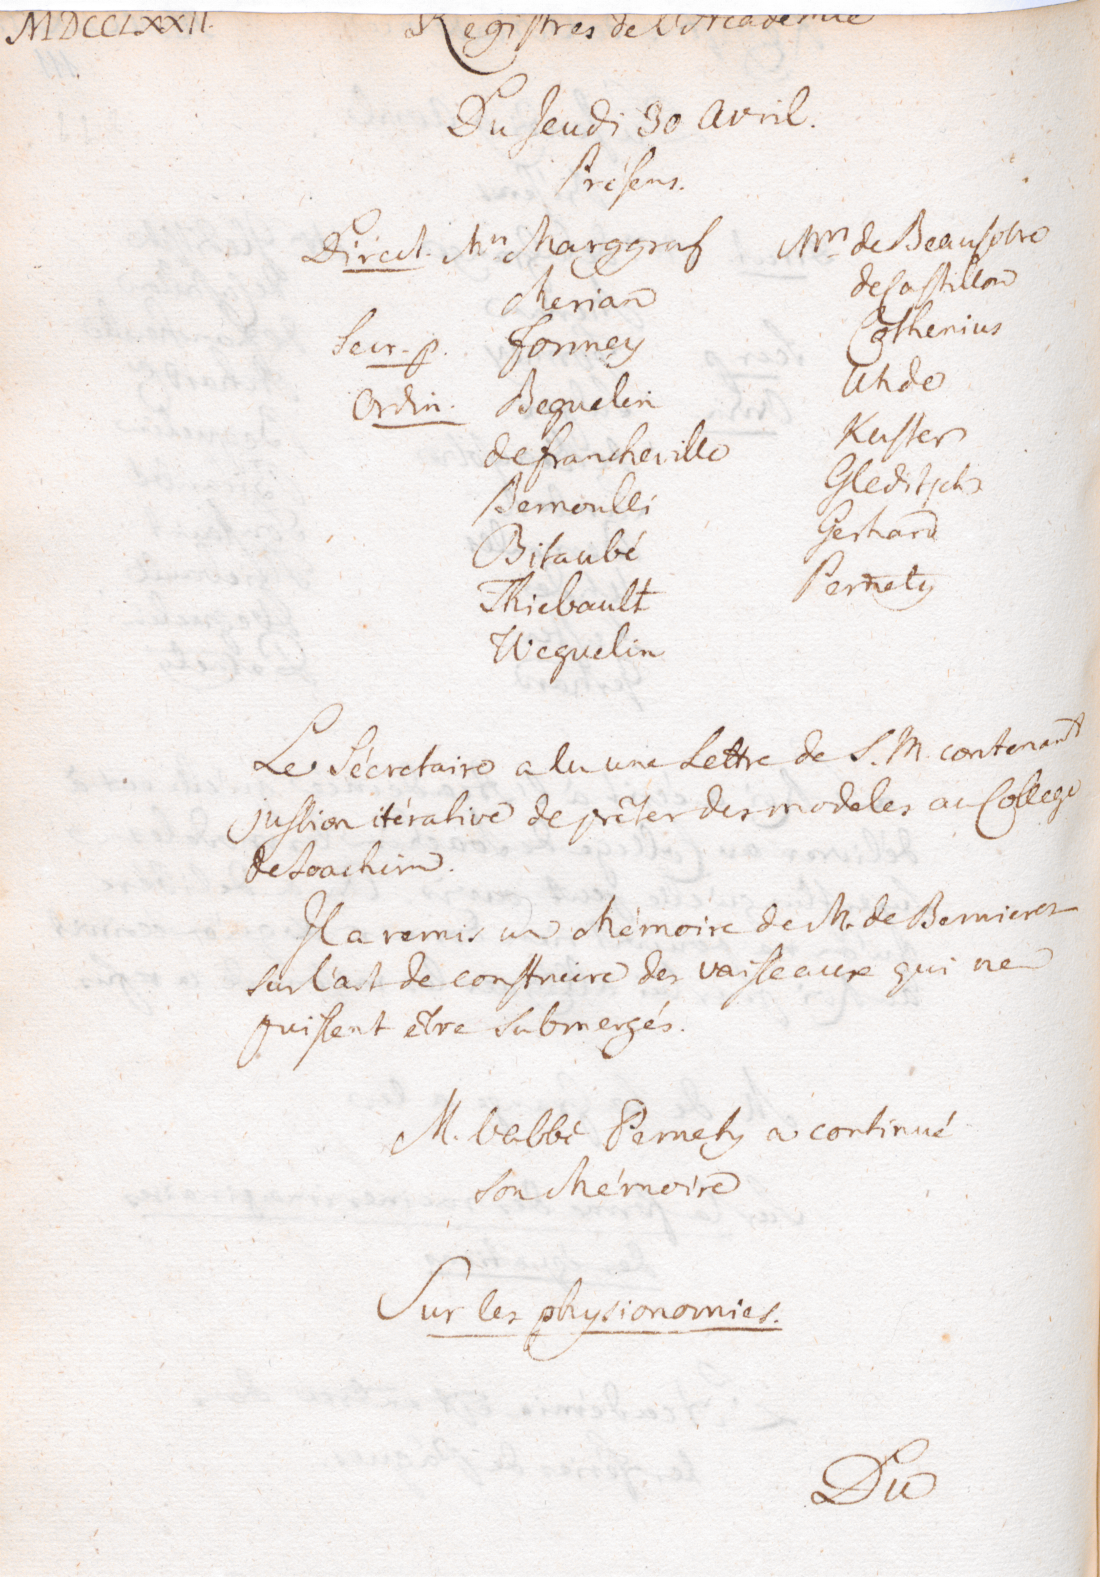 MDCCLXXII.
Registres de l'Academie
Du Jeudi 30 Avril.
Présens.
Direct. Mrs Marggraf
Merian
Secr. p. Formey
Ordin. Beguelin
de Francheville
Bernoulli
Bitaubé
Thiebault
Weguelin
Mrs de Beausobre
de Castillon
Cothenius
Uhde
Kuster
Gleditsch
Gerhard
Pernety
Le Sécretaire a lu une Lettre de S. M. contenant
jussion itérative de prêter des modeles au College
de Joachim.
Il a remis un Mémoire de M. de Bernieres
sur l'art de construire des vaisseaux qui ne
puissent etre submergés.
M. l'abbé Pernety a continué
son Mémoire
Sur les physionomies.
Du